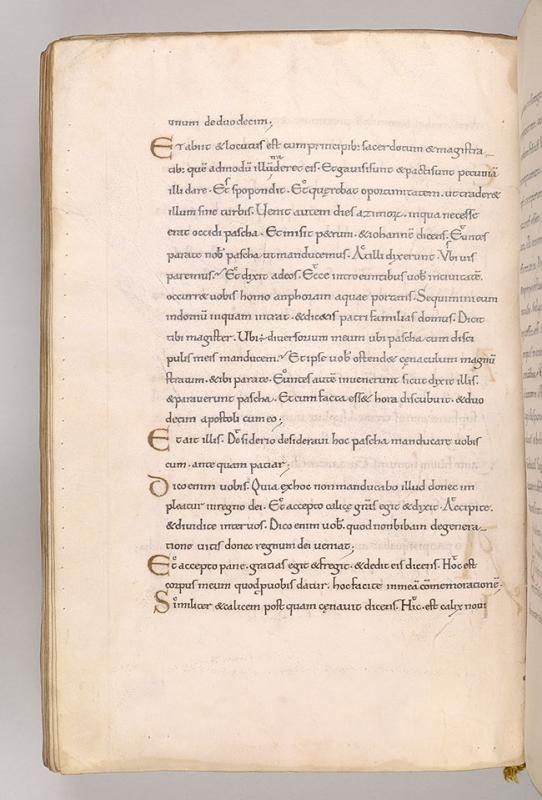 unum deduodecim;
Et abiit & locutus est cum principib; sacerdotum & magistra
tib; quē admodū illū traderet eis. Et gauisi sunt & pacti sunt pecuniā
illi dare. Et spopondit. Et querebat oportunitatem. ut trader&
illum sine turbis. Uenit autem dies azimor. inqua necesse
erat occidi pascha. Et misit p&rum. & iohannē dicens. Euntes
parate nob pascha ut manducemus. At illi dixerunt. Ubi uis
paremus? Et dixit ad eos. Ecce intro euntibus uob inciuitatē.
occurr& uobis homo anphoram aquae portans. Sequimini eum
indomū inquam intrat. & dicetis patri familias domus. Dicit
tibi magister. Ubi ÷ diuersorium meum ubi pascha cum disci
pulis meis manducem? Et ipse uob ostend& cęnaculum magnū
stratum. & ibi parate. Euntes autē inuenerunt sicut dixit illis.
& parauerunt pascha. Et cum facta ess& hora discubuit. & duo
decim apostoli cum eo;
Et ait illis. Desiderio desideraui hoc pascha manducare uobis
cum. ante quam patiar;
Dico enim uobis. Quia ex hoc non manducabo illud donec im
pleatur inregno dei. Et accepto calice grās egit & dixit. Accipite.
& diuidite inter uos. Dico enim uob. quod non bibam degenera
tione uitis donec regnum dei ueniat;
Et accepto pane. gratias egit & fregit. & dedit eis dicens. Hoc est
corpus meum quod p uobis datur. hoc facite inmeā cōmemorationē.
Similiter & calicem post quam cęnauit dicens. Hic. est calix noui